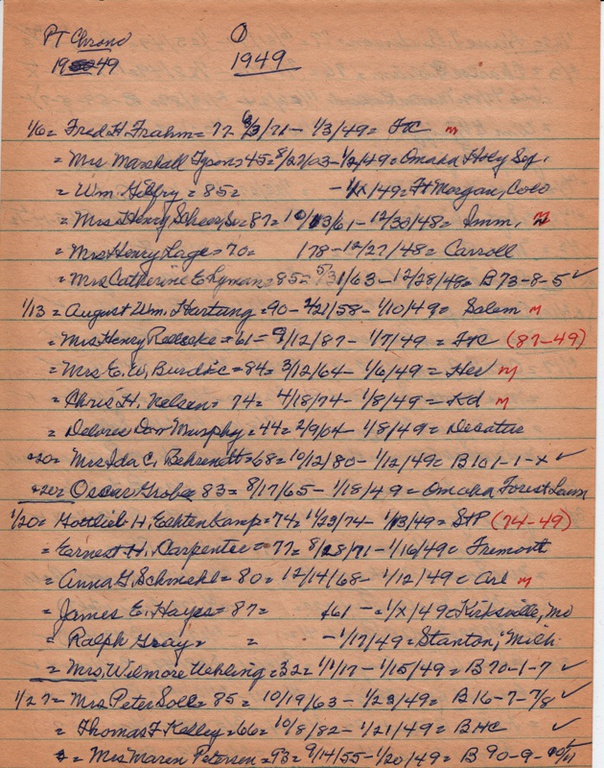 PT Chrono ①
1949 1949
1/6 = Fred H. Frahm = 77 - 8/3/71 - 1/3/49 = FtC m
= Mrs Marshall Tyson = 45 = 8/27/03 - 1/2/49 = Omaha Holy Sep.
= Wm. Gilfry = 85 = - 1/X/49 = Ft Morgan, Colo
= Mrs Henry Scheer, Sr = 87 = 10/13/61 - 12/30/48 = Imm. m
= Mrs Henry Lage = 70 = 178 - 12/27/48 = Carroll
= Mrs Catherine E. Lyman = 85 = 5/31/63 - 12/28/48 = B 73-8-5 ✓
1/13 = August Wm. Hartung = 90 - 2/21/58 - 1/10/49 = Salem m
= Mrs Henry = 61 = 9/12/87 - 1/7/49 = FtC (87-49)
= Mrs E. W. Burdic = 84 = 3/12/64 - 1/6/49 = m
= Chris H. Nelsen = 74 = 4/18/74 - 1/8/49 = m
= Murphy = 44 = 2/9/04 - 1/8/49 = Decatur
= Mrs Ida C. Behrendt = 68 = 10/12/80 - 1/12/49 = B 101-1-X ✓
Oscar Grobe 83 = 8/17/65 - 1/18/49 = Omaha Forest Lawn
1/20 = Gottlieb H. Echtenkamp = 74 = 11/23/74 - 1/13/49 = StP (74-49)
= Earnest H. Carpenter = 77 = 8/28/71 - 1/16/49 = Fremont
= Anna G. Schmehl = 80 = 12/14/68 - 1/12/49 = Arl m
= James E. Hayes = 87 = 161 - = 1/X/49 = Kirksville, Mo
= Ralph Gray = = - 1/17/49 = Stanton, Mich.
= Mrs. Wilmore Uehling = 32 = 1/1/17 - 1/15/49 = B 70-1-7 ✓
1/27 = Mrs Peter Soll = 85 = 10/19/63 - 1/23/49 = B 16-7-7/8 ✓
= Thomas F. Kelley = 66 = 10/8/82 - 1/21/49 = BHC ✓
= Mrs Maren Petersen = 93 = 9/14/55 - 1/20/49 = B 90-9-10/11